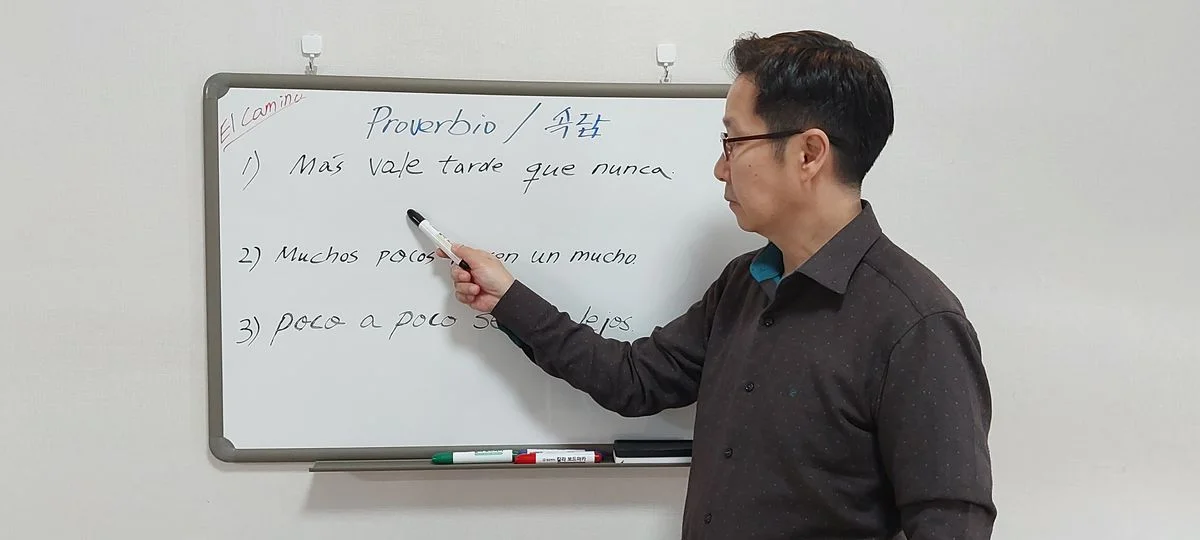 El Camino
Proverbio / 속담
1) Más vale tarde que nunca.
2) Muchos pocos en un mucho.
3) poco a poco se lejos.
킬라 보드마카